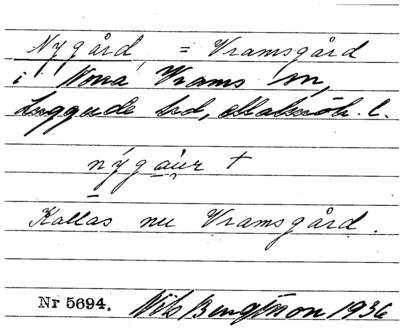 Nygård, = Vramsgård
i Norra Vrams sn,
Luggude hd, Malmöh. l.
nýgåu̯r †
Kallas nu Vramsgård.
Nr 5694. Nils Bengtsson 1936